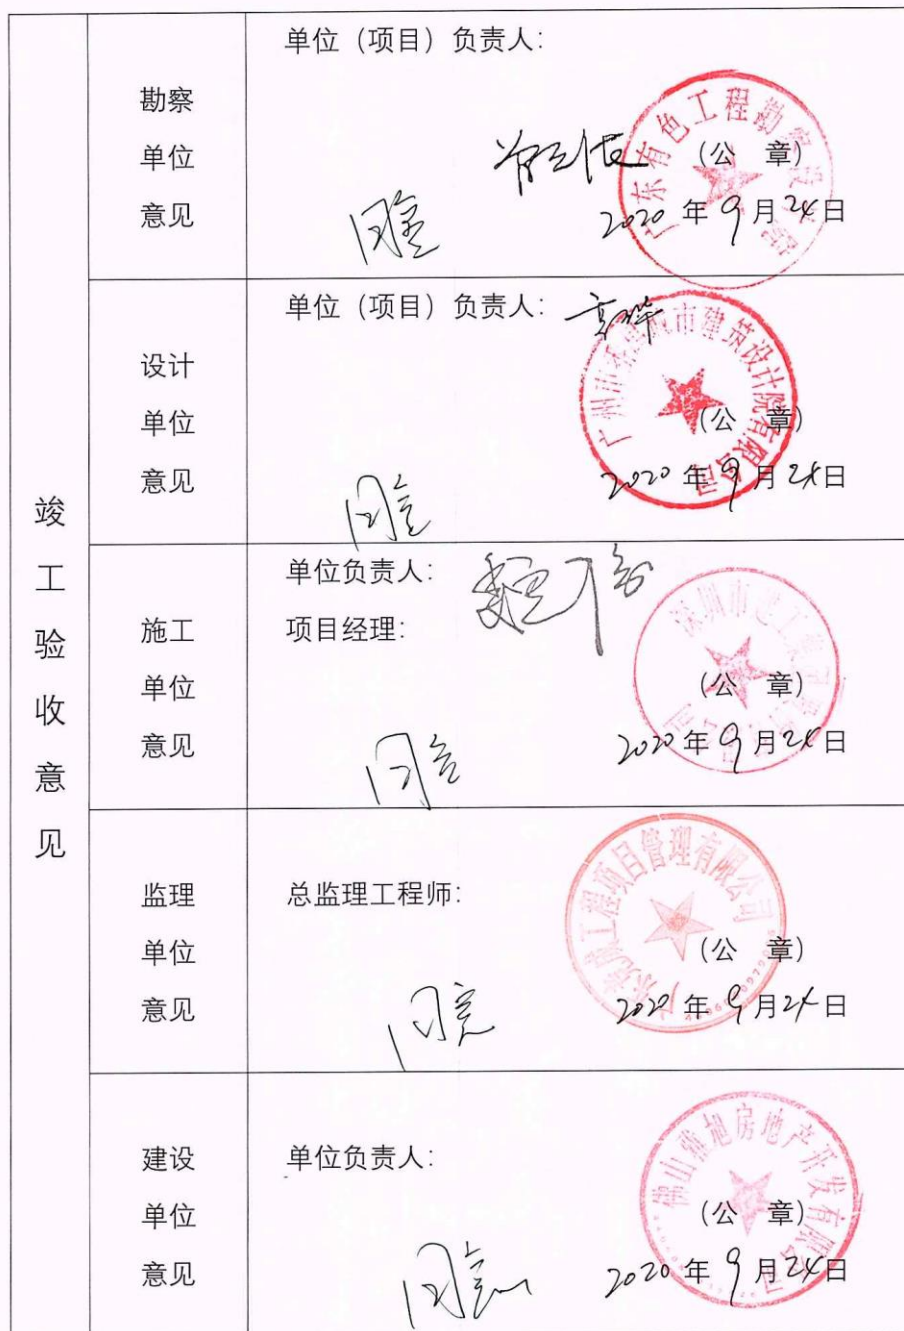 竣工验收意见
勘察单位意见
单位（项目）负责人：
同意
（公 章）
2020 年 9 月 24 日
设计单位意见
单位（项目）负责人：
同意
（公 章）
2020 年 9 月 24 日
施工单位意见
单位负责人：
项目经理：
同意
（公 章）
2020 年 9 月 24 日
监理单位意见
总监理工程师：
同意
（公 章）
2020 年 9 月 24 日
建设单位意见
单位负责人：
同意
佛山雅旭房地产开发有限公司
（公 章）
2020 年 9 月 24 日